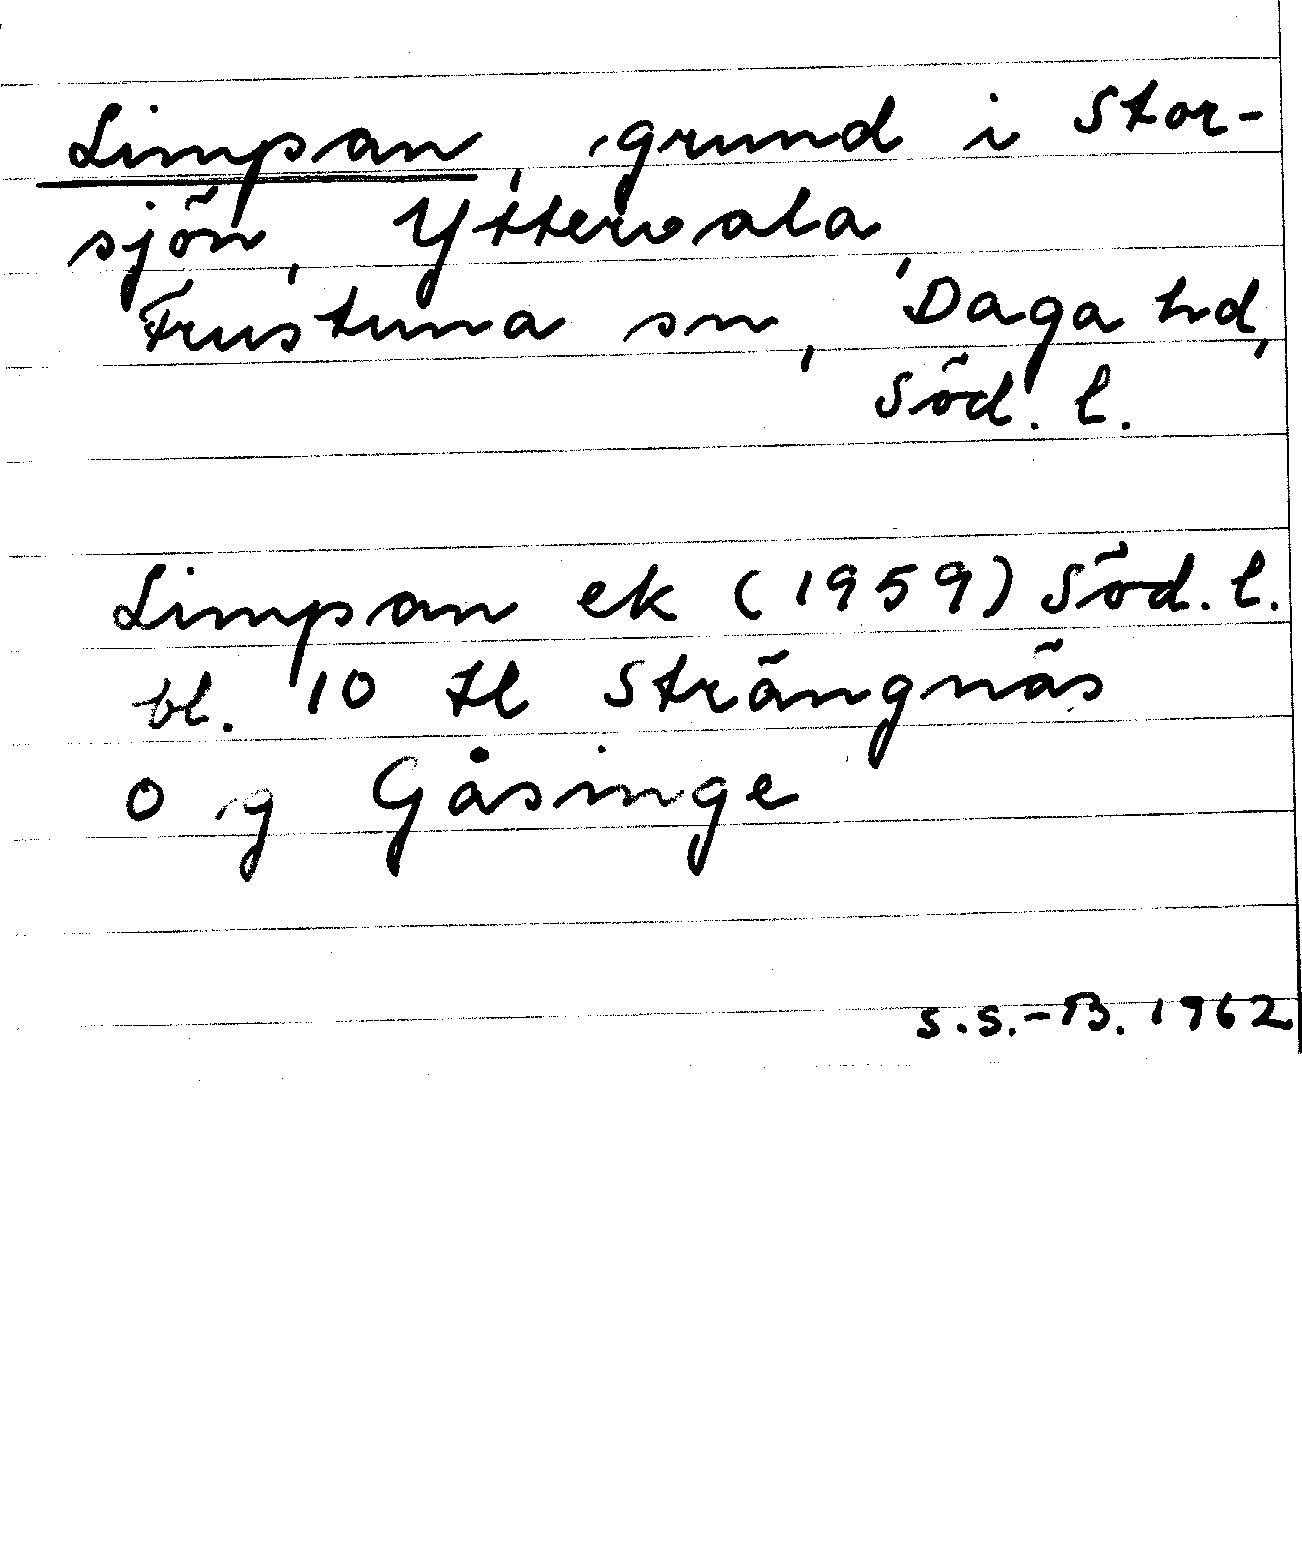 Limpan, grund i Stor-
sjön, Yttervala,
Frustuna sn, Daga hd,
Söd. l.
Limpan ek (1959) Söd. l.
bl. 10 tl Strängnäs
o g Gåsinge
S.S.-B. 1962